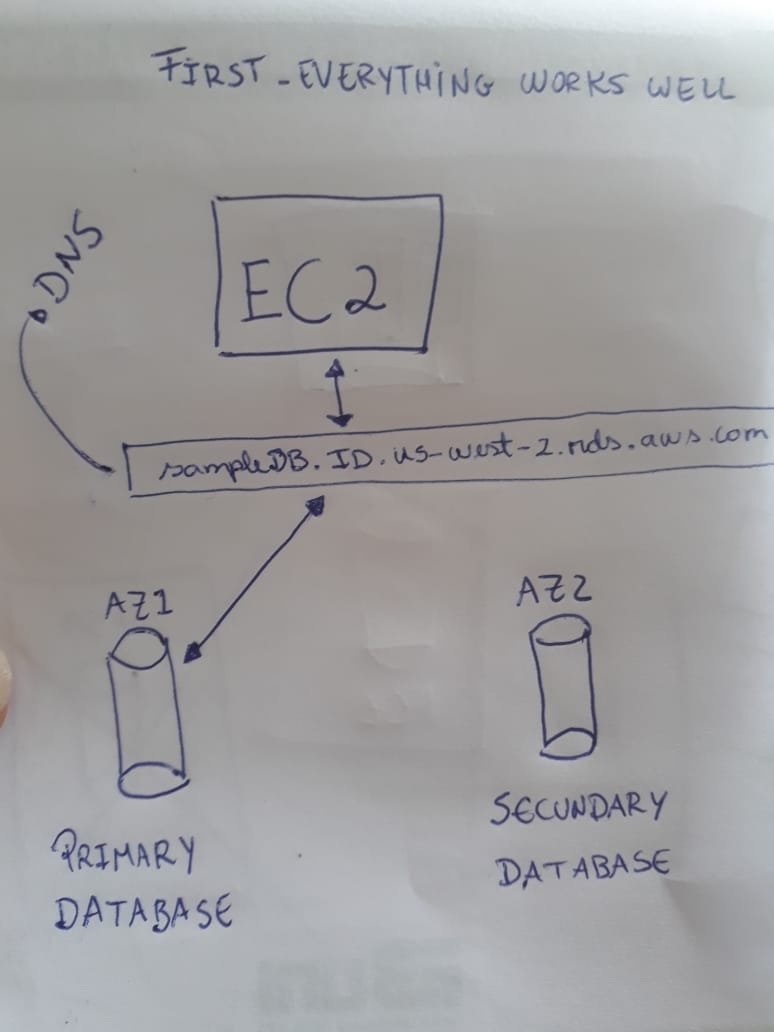 FIRST - EVERYTHING WORKS WELL
DNS
EC2
sampleDB.ID.us-west-2.rds.aws.com
AZ1
AZ2
PRIMARY
DATABASE
SECUNDARY
DATABASE